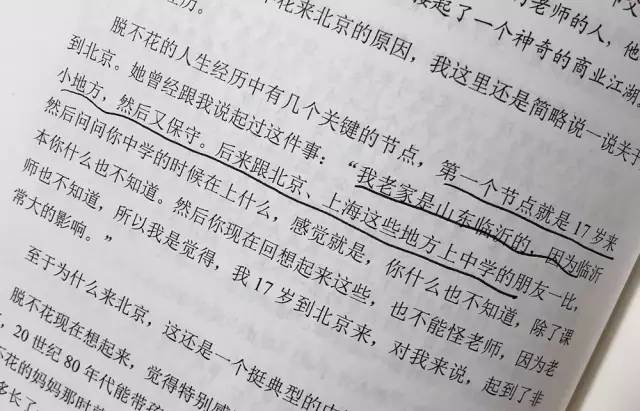 老师的人，他
起了一个神奇的商业江湖
历。
花来北京的原因，我这里还是简略说一说关
脱不花的人生经历中有几个关键的节点，第一个节点就是17岁来
到北京。她曾经跟我说起过这件事：“我老家是山东临沂的，因为临沂
小地方，然后又保守。后来跟北京、上海这些地方上中学的朋友一比，
然后问问你中学的时候在上什么，感觉就是，你什么也不知道，除了课
本你什么也不知道。然后你现在回想起来这些，也不能怪老师，因为老
师也不知道，所以我是觉得，我17岁到北京来，对我来说，起到了非
常大的影响。”
至于为什么来北京，这还是一个挺典型的
脱不花现在想起来，觉得特别
，20世纪80年代能带
不花的妈妈那时
长了